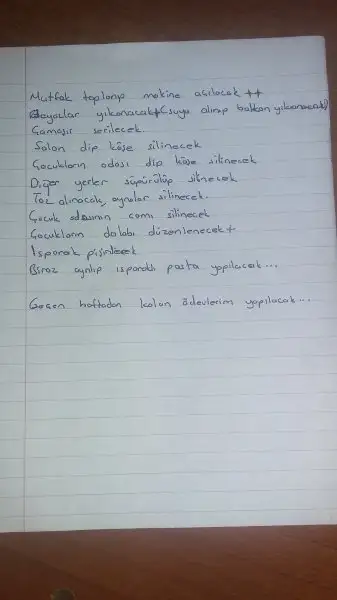 Mutfak toplanıp makine açılacak ++
Beyazlar yıkanacak+(suyu alınıp balkon yıkanacak)
Çamaşır serilecek.
Salon dip köşe silinecek
Çocukların odası dip köşe silinecek
Diğer yerler süpürülüp silinecek
Toz alınacak, aynalar silinecek.
Çocuk odasının camı silinecek
Çocukların dolabı düzenlenecek +
Ispanak pişirilecek
Biraz ayrılıp ıspanaklı pasta yapılacak...
Geçen haftadan kalan ödevlerim yapılacak...